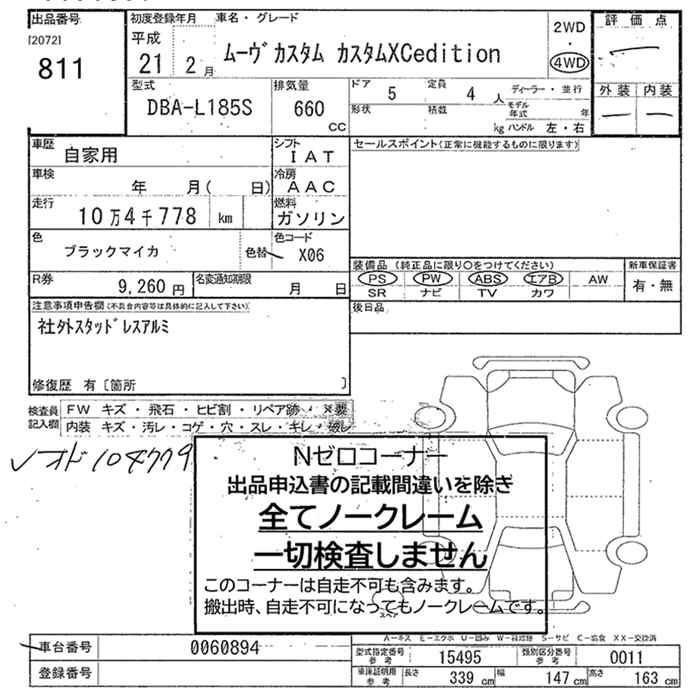 出品番号
[2072]
811
初度登録年月
車名・グレード
平成
21 2月
ムーヴカスタム カスタムXCedition
2WD
・
4WD
評価点
外装 内装
型式
DBA-L185S
排気量
660
CC
ドア 5
定員 4 人
ディーラー・並行
形状
積数 kg
モデル年式 年
ハンドル 左・右
車歴
自家用
シフト
IAT
セールスポイント(正常に機能するものに限ります)
車検
年 月( 日)
冷房
AAC
走行
10万4千778 km
燃料
ガソリン
色
ブラックマイカ
色替
色コード
X06
装備品 (純正品に限り○をつけてください)
PS PW ABS エアB AW
SR ナビ TV カワ
新車保証書
有・無
R券
9,260 円
名変通知期限
月 日
後日品
注意事項申告欄(不具合内容等は具体的に記入して下さい)
社外スタッドレスアルミ
修復歴 有 〔箇所 〕
検査員記入欄
FW キズ・飛石・ヒビ割・リペア跡・X要
内装 キズ・汚レ・コゲ・穴・スレ・キレ・破レ
ソオド104779
Nゼロコーナー
出品申込書の記載間違いを除き
全てノークレーム
一切検査しません
このコーナーは自走不可も含みます。
搬出時、自走不可になってもノークレームです。
スペア
A-キス E-エクボ U-凹み W-補修跡 S-サビ C-腐食 XX-交換済
車台番号
0060894
登録番号
型式指定番号 参考 15495
類別区分番号 参考 0011
車庫証明用 参考 長さ 339 cm 幅 147 cm 高さ 163 cm